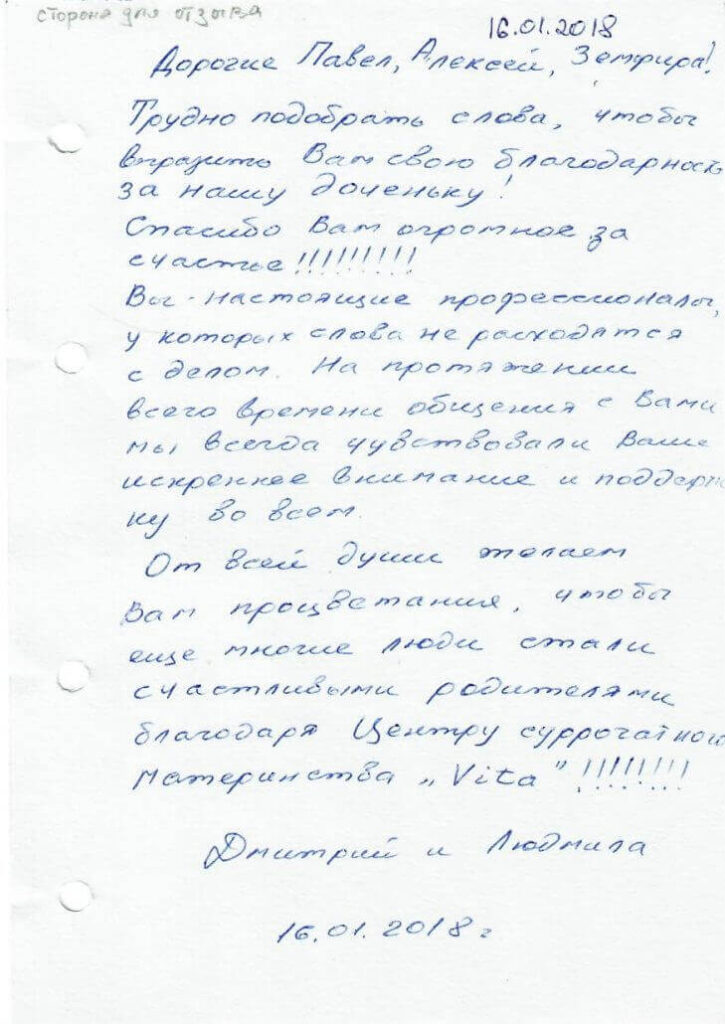 сторона для отзыва
16.01.2018
Дорогие Павел, Алексей, Земфира!
Трудно подобрать слова, чтобы
выразить Вам свою благодарность
за нашу доченьку!
Спасибо Вам огромное за
счастье!!!!!!!!!
Вы - настоящие профессионалы,
у которых слова не расходятся
с делом. На протяжении
всего времени общения с Вами
мы всегда чувствовали Ваше
искреннее внимание и поддерж
ку во всем.
От всей души желаем
Вам процветания, чтобы
еще многие люди стали
счастливыми родителями
благодаря Центру суррогатного
материнства „Vita” !!!!!!!!
Дмитрий и Людмила
16.01.2018 г